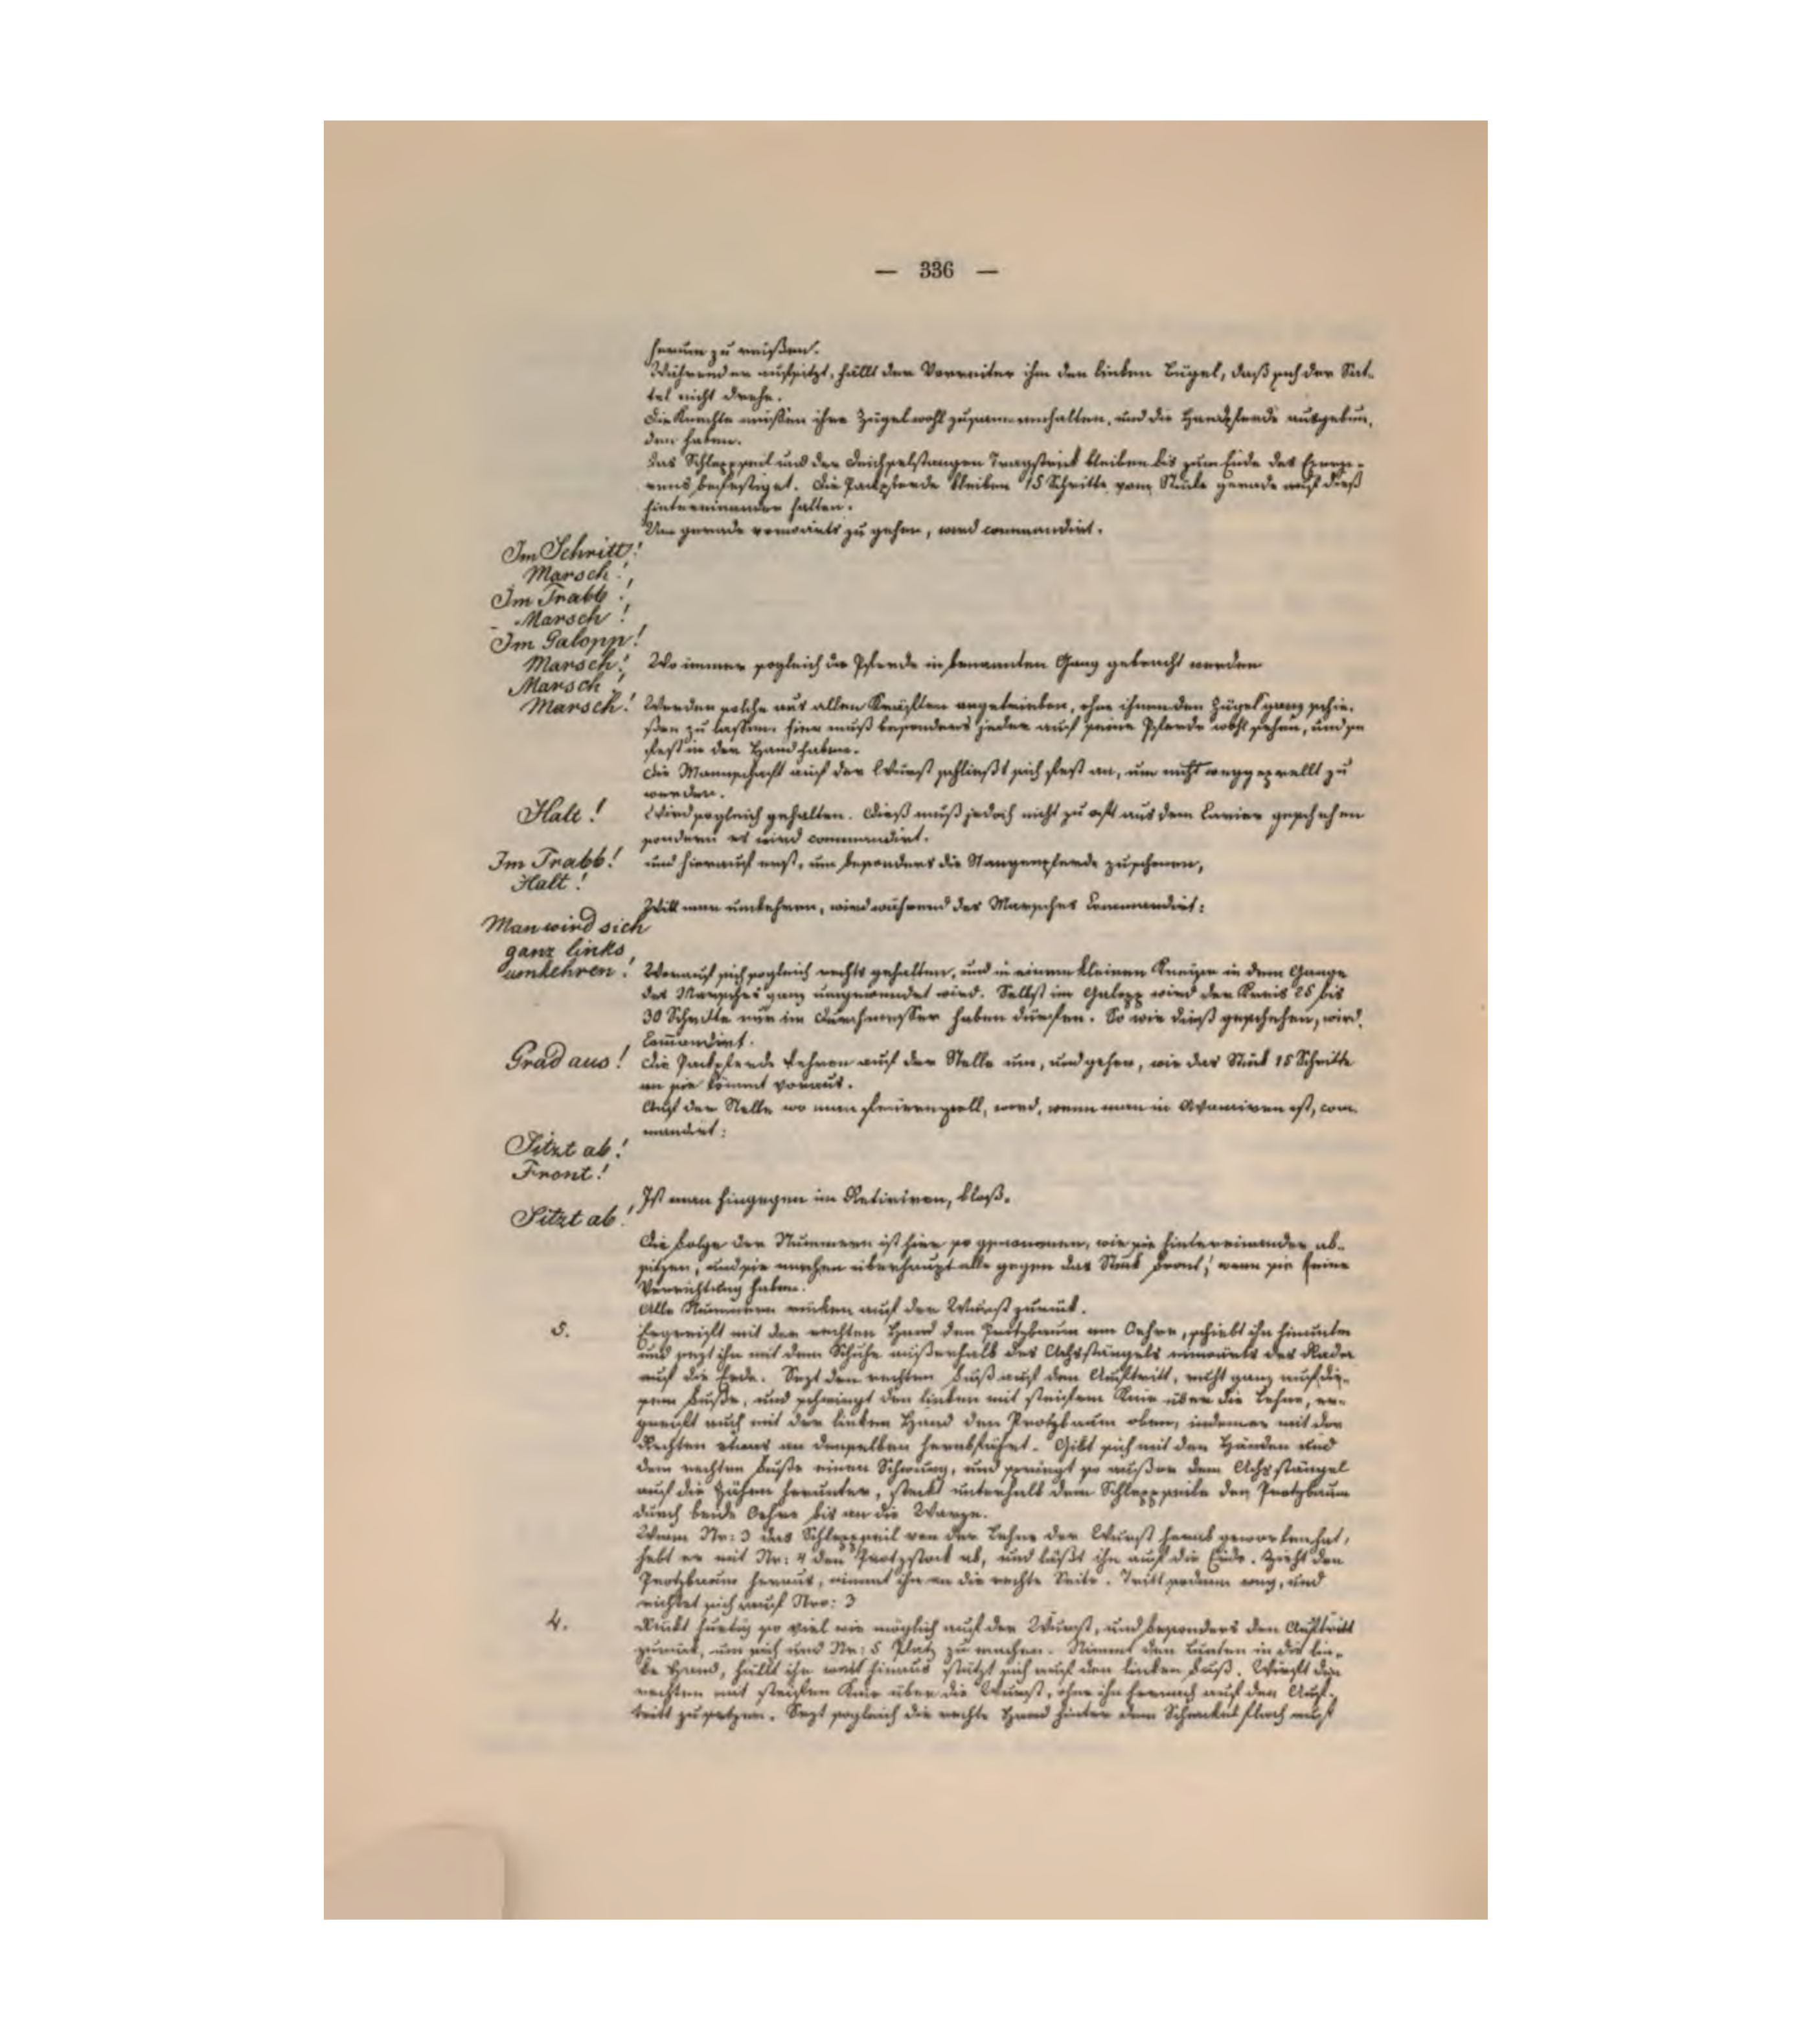 — 336 —
herum zu reißen.
Während er aufsitzt, hällt der Vorreiter ihm den linken Bügel, daß sich der Sat-
tel nicht drehe.
Die Knechte müßen ihre Zügel wohl zusammenhalten, und die Handpferde ausgebun,
den haben.
Das Schleppseil und der Deichselstangen Tragstrick bleiben bis zum Ende des Exerzi-
rens befestiget. Die Packpferde bleiben 15 Schritte vom Stücke gerade auf dieß
hintereinander halten.
Um gerade vorwärts zu gehen, wird commandirt.
Im Schritt!
Marsch!
Im Trabb!
Marsch!
Im Galopp!
Marsch! Wo immer sogleich die Pferde in benannten Gang gebracht werden
Marsch!
Marsch! Werden solche aus allen Kräften angetrieben, ohne ihnen den Zügel ganz schie,
ßen zu lassen. Hier muß besonders jeder auf seine Pferde wohl sehen, und sie
fest in der Hand haben.
Die Mannschaft auf der Wurst schließt sich fest an, um nicht weggeprellt zu
werden.
Halt! Wird sogleich gehalten. Dieß muß jedoch nicht zu oft aus dem Carier geschehen
sondern es wird commandirt.
Im Trabb! und hierauf erst, um besonders die Stangenpferde zu schonen,
Halt!
Will man umkehren, wird während des Marsches Commandirt:
Man wird sich
ganz links
umkehren! Worauf sich sogleich rechts gehalten, und in einem kleinen Kreise in dem Gange
des Marsches ganz umgewendet wird. Selbst im Galopp wird der Kreis 25 bis
30 Schritte nur im Durchmesser haben dürfen. So wie dieß geschehen, wird
Commandirt.
Grad aus! Die Packpferde kehren auf der Stelle um, und gehen, wie das Stück 15 Schritte
an sie kömmt voraus.
Auf der Stelle wo man feuern soll, wird, wenn man in Avanciren ist, com
mandirt:
Sitzt ab!
Front!
Ist man hingegen im Retiriren, bloß.
Sitzt ab!
Die Folge der Nummern ist hier so genommen, wie sie hintereinander ab-
sitzen, und sie machen überhaupt alle gegen das Stück Front, wenn sie keine
Verrichtung haben.
Alle Nummern rücken auf der Wurst zurück.
5. Ergreift mit der rechten Hand den Protzbaum am Oehre, schiebt ihn hinunter
und sezt ihn mit dem Schuhe außerhalb des Achsstängels einwärts des Rades
auf die Erde. Sezt den rechten Fuß auf den Auftritt, nicht ganz auf die-
sem Fuße, und schwingt den linken mit steifem Knie über die Lehne, er-
greift auch mit der linken Hand den Protzbaum oben, indem er mit der
Rechten etwas an demselben herabfährt. Gibt sich mit den Händen und
dem rechten Fuße einen Schwung, und springt so außer dem Achsstängel
auf die Zähen herunter, steckt unterhalb dem Schleppseile den Protzbaum
durch beide Oehre bis an die Warze.
Wenn Nr: 3 das Schleppseil von der Lehne der Wurst herab geworfen hat,
hebt er mit Nr: 4 den Protzstock ab, und läßt ihn auf die Erde. Zieht den
Protzbaum heraus, nimmt ihn an die rechte Seite. Tritt sodann weg, und
richtet sich auf Nro: 3
4. Rückt hurtig so viel wie möglich auf der Wurst, und besonders den Auftritt
zurück, um sich und Nr: 5 Platz zu machen. Nimmt den Lunten in die lin-
ke Hand, hällt ihn weit hinaus stützt sich auf den linken Fuß. Wirft den
rechten mit steifen Knie über die Wurst, ohne ihn hernach auf den Auf-
tritt zu setzen. Sezt sogleich die rechte Hand hinter dem Schenkel flach auf